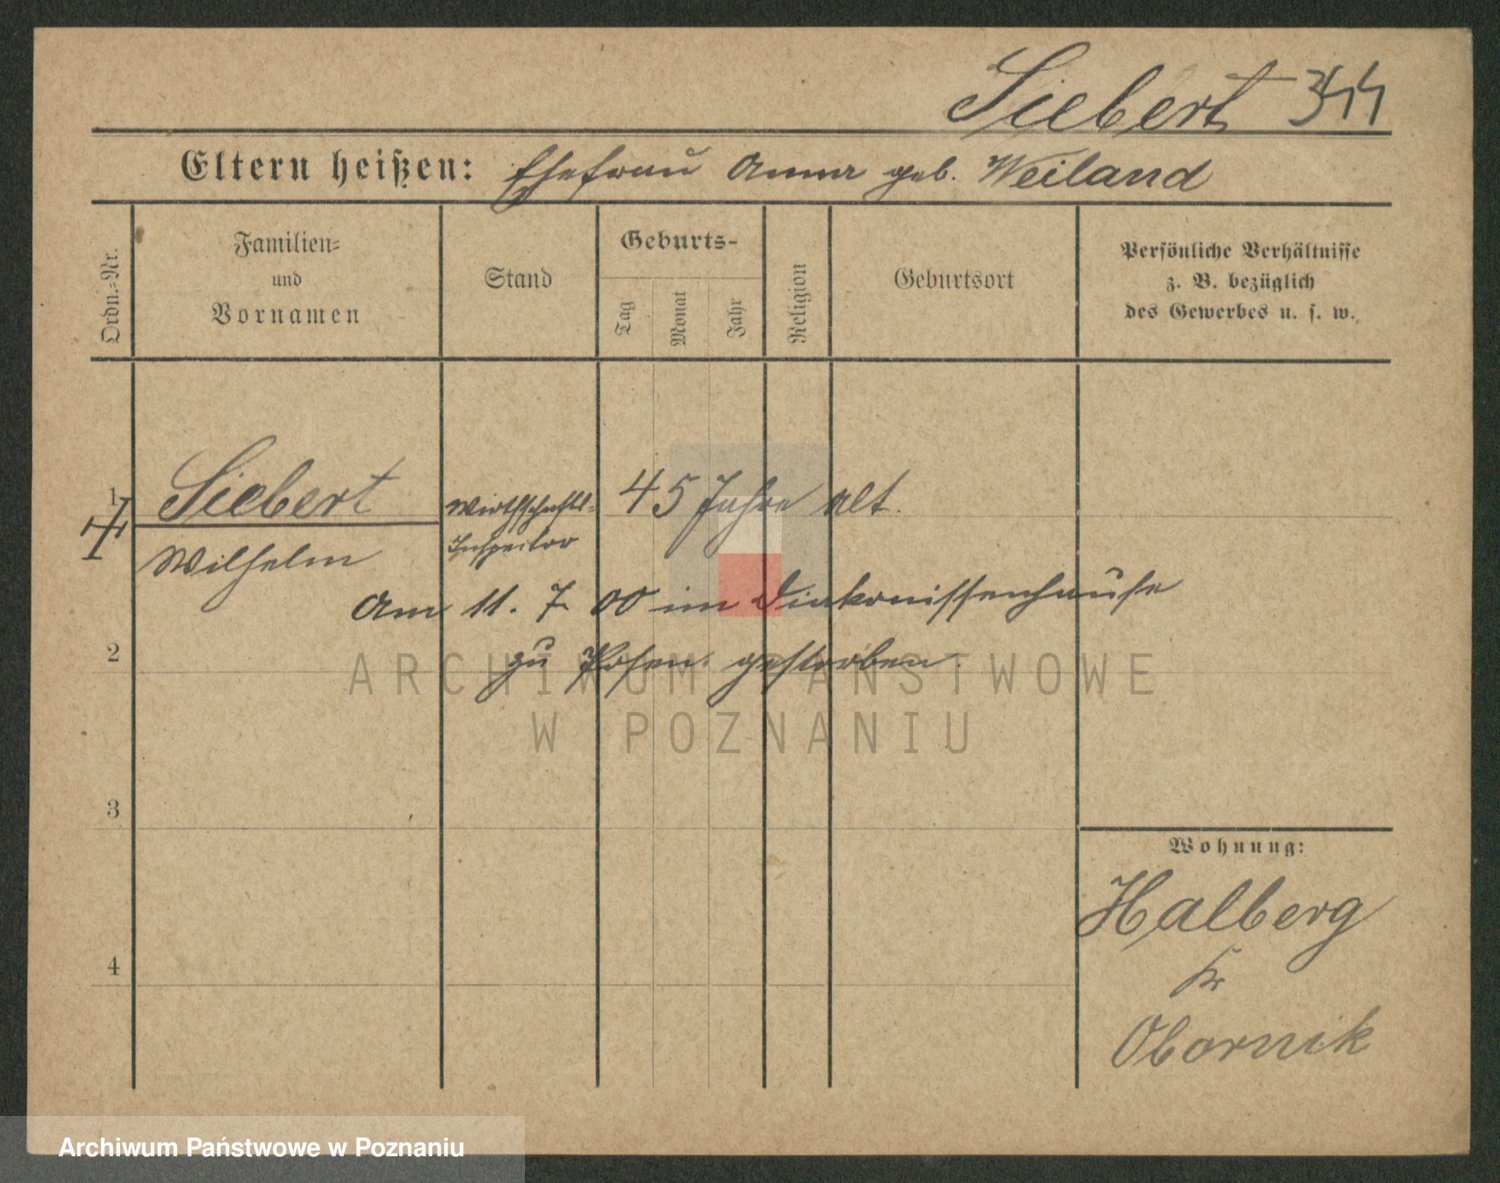 Siebert 344
Eltern heißen: Ehefrau Anna geb. Weiland
Ordn.=Nr.
Familien=
und
Vornamen
Stand
Geburts-
Tag
Monat
Jahr
Religion
Geburtsort
Persönliche Verhältnisse
z. B. bezüglich
des Gewerbes u. s. w.
1 Siebert Wirthschafts- 45 Jahre alt.
Wilhelm Inspektor
Am 11. 7. 00 im Diakonissenhause
2 zu Posen gestorben.
ARCHIWUM PAŃSTWOWE
W POZNANIU
3
Wohnung:
Halberg
4
Kr
Obornik
Archiwum Państwowe w Poznaniu